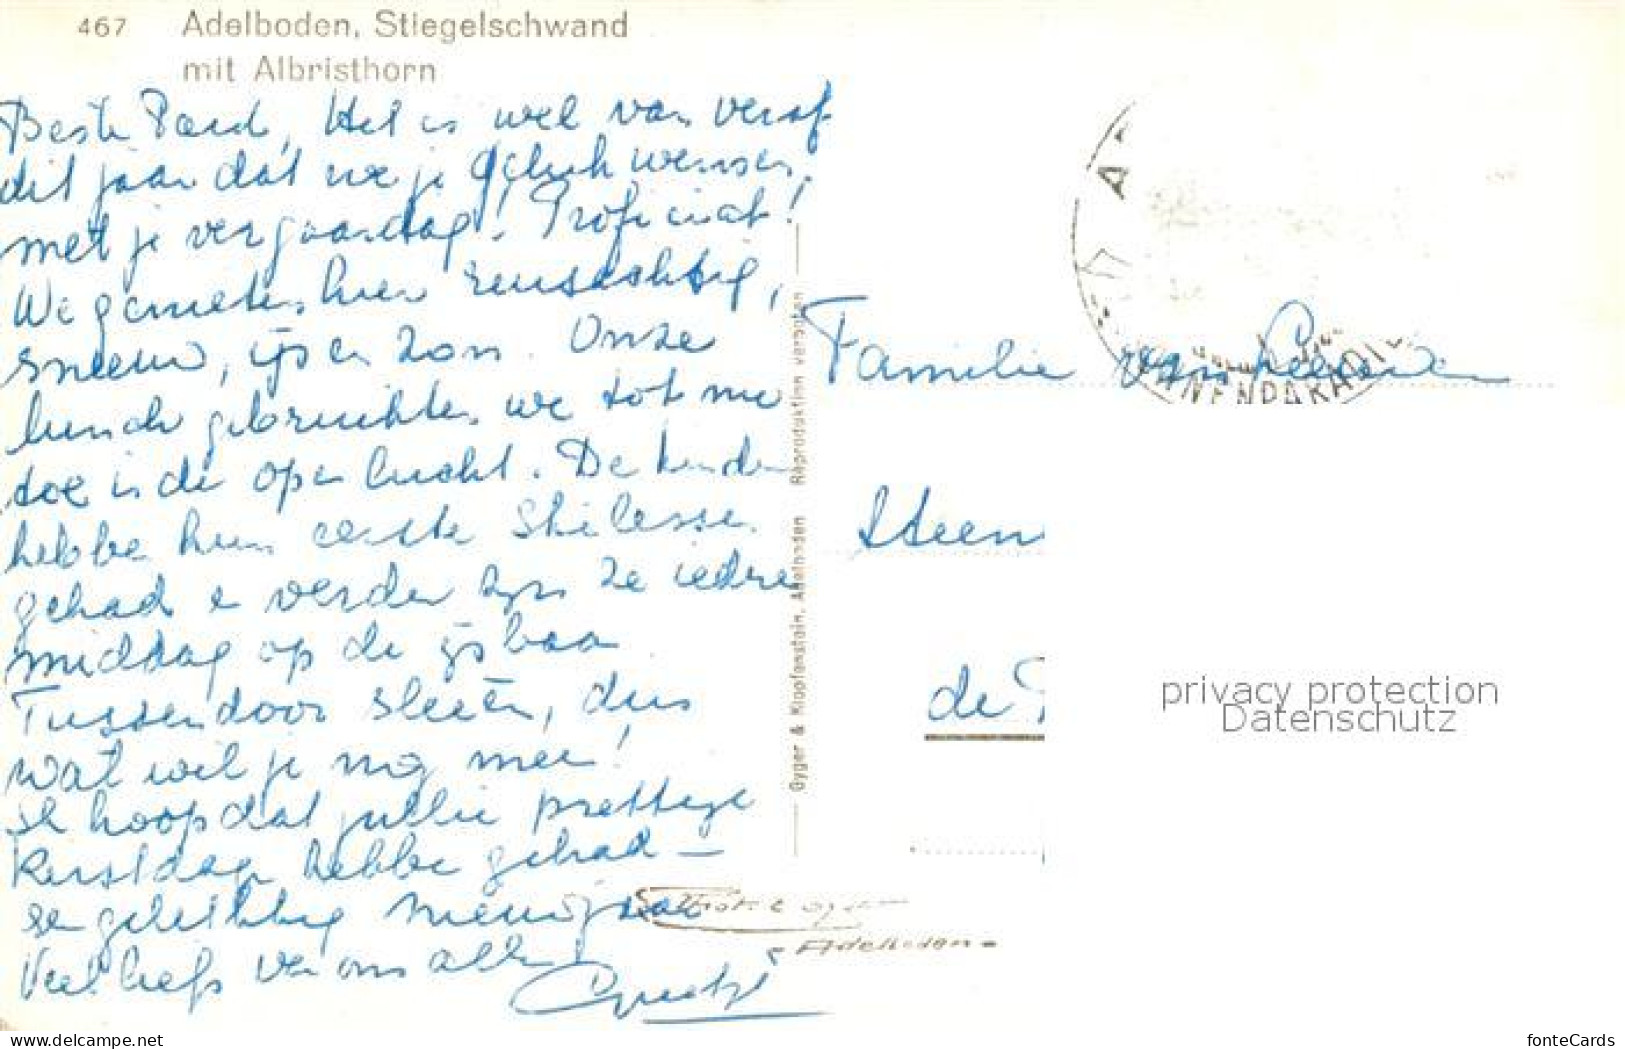 467 Adelboden, Stiegelschwand
mit Albristhorn
Beste Het is wel van veraf
dit jaar dat we je geluk wensen
met je verjaardag! Proficiat!
We genieten hier reusachtig,
sneeuw, ijs en zon. Onze
lunch gebruikten we tot nu
toe in de open lucht. De kinderen
hebben hun eerste skilessen
gehad en verder zijn ze iedere
middag op de ijsbaan
Tussendoor sleeën, dus
wat wil je nog meer!
Ik hoop dat jullie prettige
Kerstdagen hebben gehad —
en gelukkig nieuwjaar
Veel liefs van ons allen
Familie van
Steen
de
Gyger & Klopfenstein, Adelboden Reproduktion verboten
Adelboden
privacy protection
Datenschutz
Delcampe.net
fonteCards